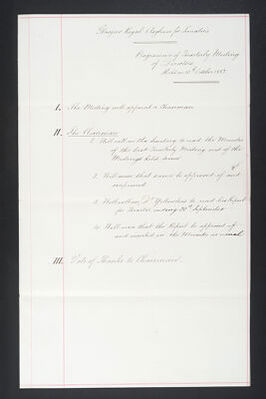 Glasgow Royal Asylum for Lunatics
Programme of Quarterly Meeting
of Directors
Held on October 1883
I. The Meeting will appoint a Chairman
II. The Chairman
1. Will call on the Secretary to read the Minutes
of the last Quarterly Meeting and of the
Meetings held since
2. Will move that same be approved of and
confirmed
3. Will call on Dr Yellowlees to read his Report
for Quarter ending 30th September
4. Will move that the Report be approved of
and inserted in the Minutes as usual
III. Vote of Thanks to Chairman.